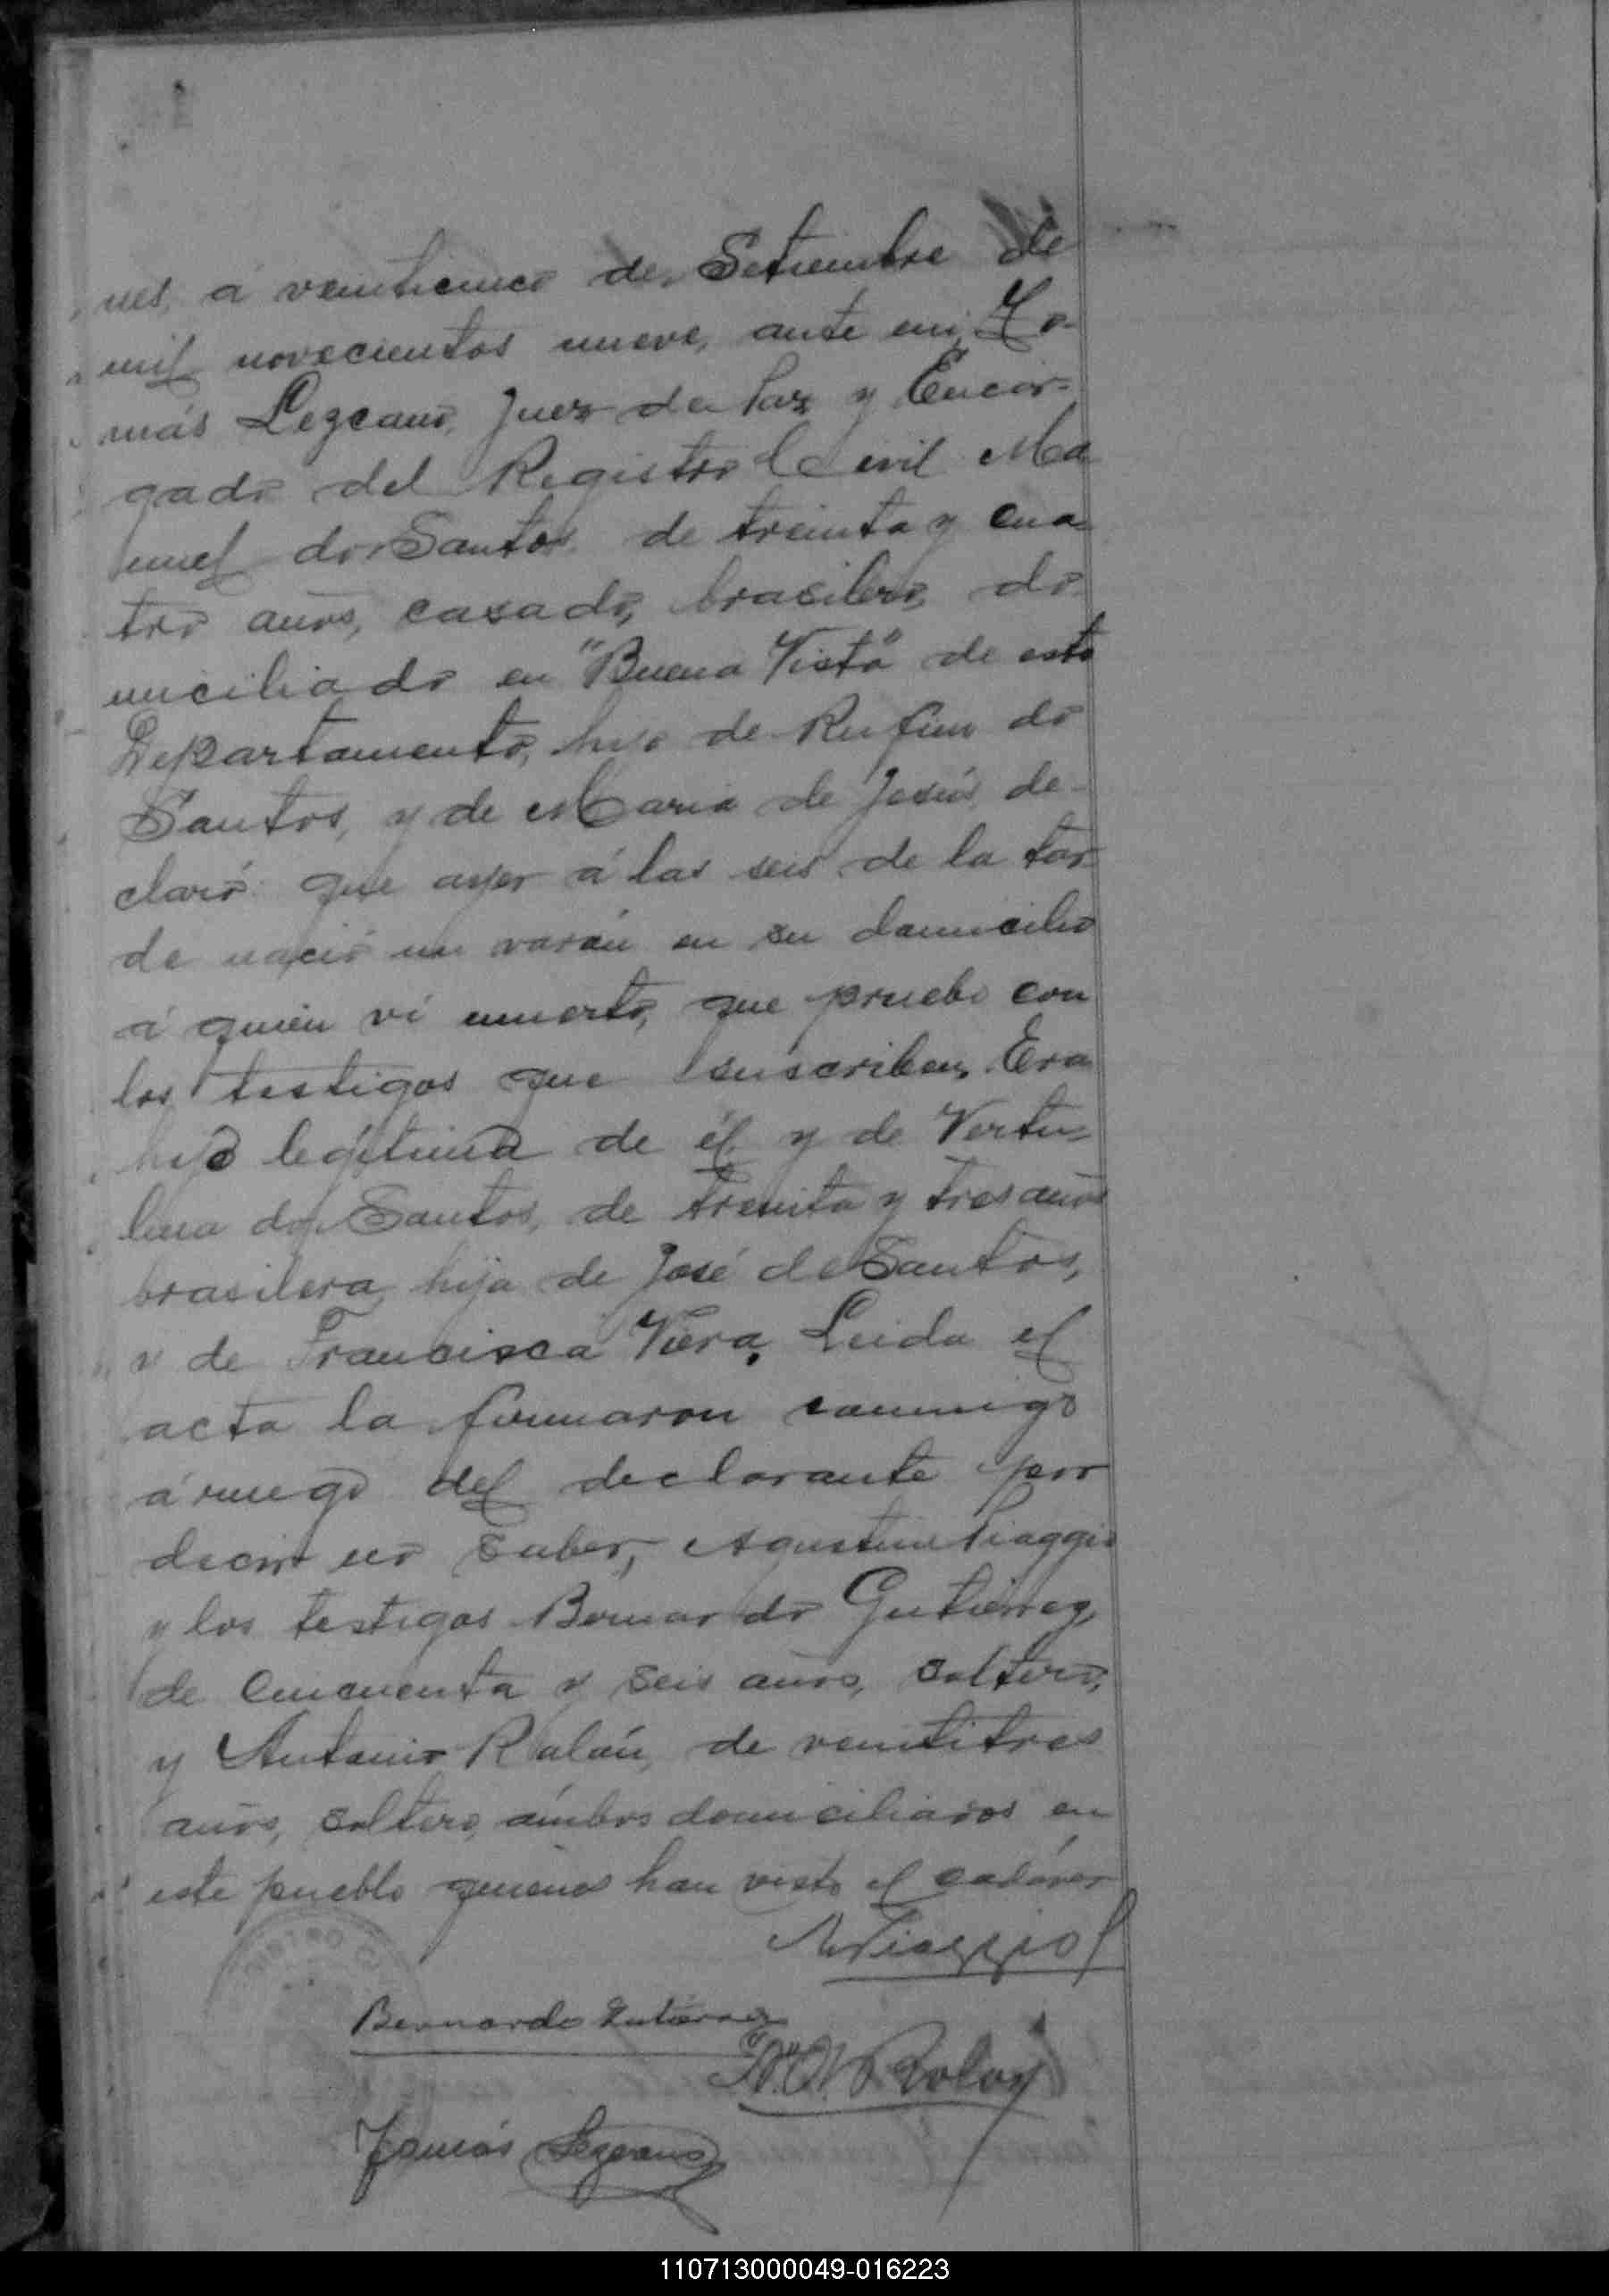 nes, á veinticinco de Setiembre de
mil novecientos nueve, ante mi, To-
más Lezcano, Juez de Paz y Encar-
gado del Registro Civil Ma
nuel do Santos de treinta y cua
tro años, casado, brasilero, do
miciliado en "Buena Vista" de este
Departamento, hijo de Rufino do
Santos, y de Maria de Jesús, de-
claró: que ayer á las seis de la tar
de nació un varón en su domicilio
á quien ví muerto, que pruebo con
los testigos que suscriben, Era
hijo legítimo de él, y de Vertu-
lina do Santos, de treinta y tres años
brasilera, hija de José de Santos,
y de Francisca Viera, Leida el
acta la firmaron conmigo
á ruego del declarante por
decir no saber, Agustin Piaggio
y los testigos Bernardo Gutiérrez,
de cincuenta y seis años, soltero,
y Antonio Rolón, de veintitres
años, soltero, ambos domiciliados en
este pueblo quienes han visto el cadáver
A Piaggio
Bernardo Gutierrez
Rolon
Tomás Lezcano
110713000049-016223